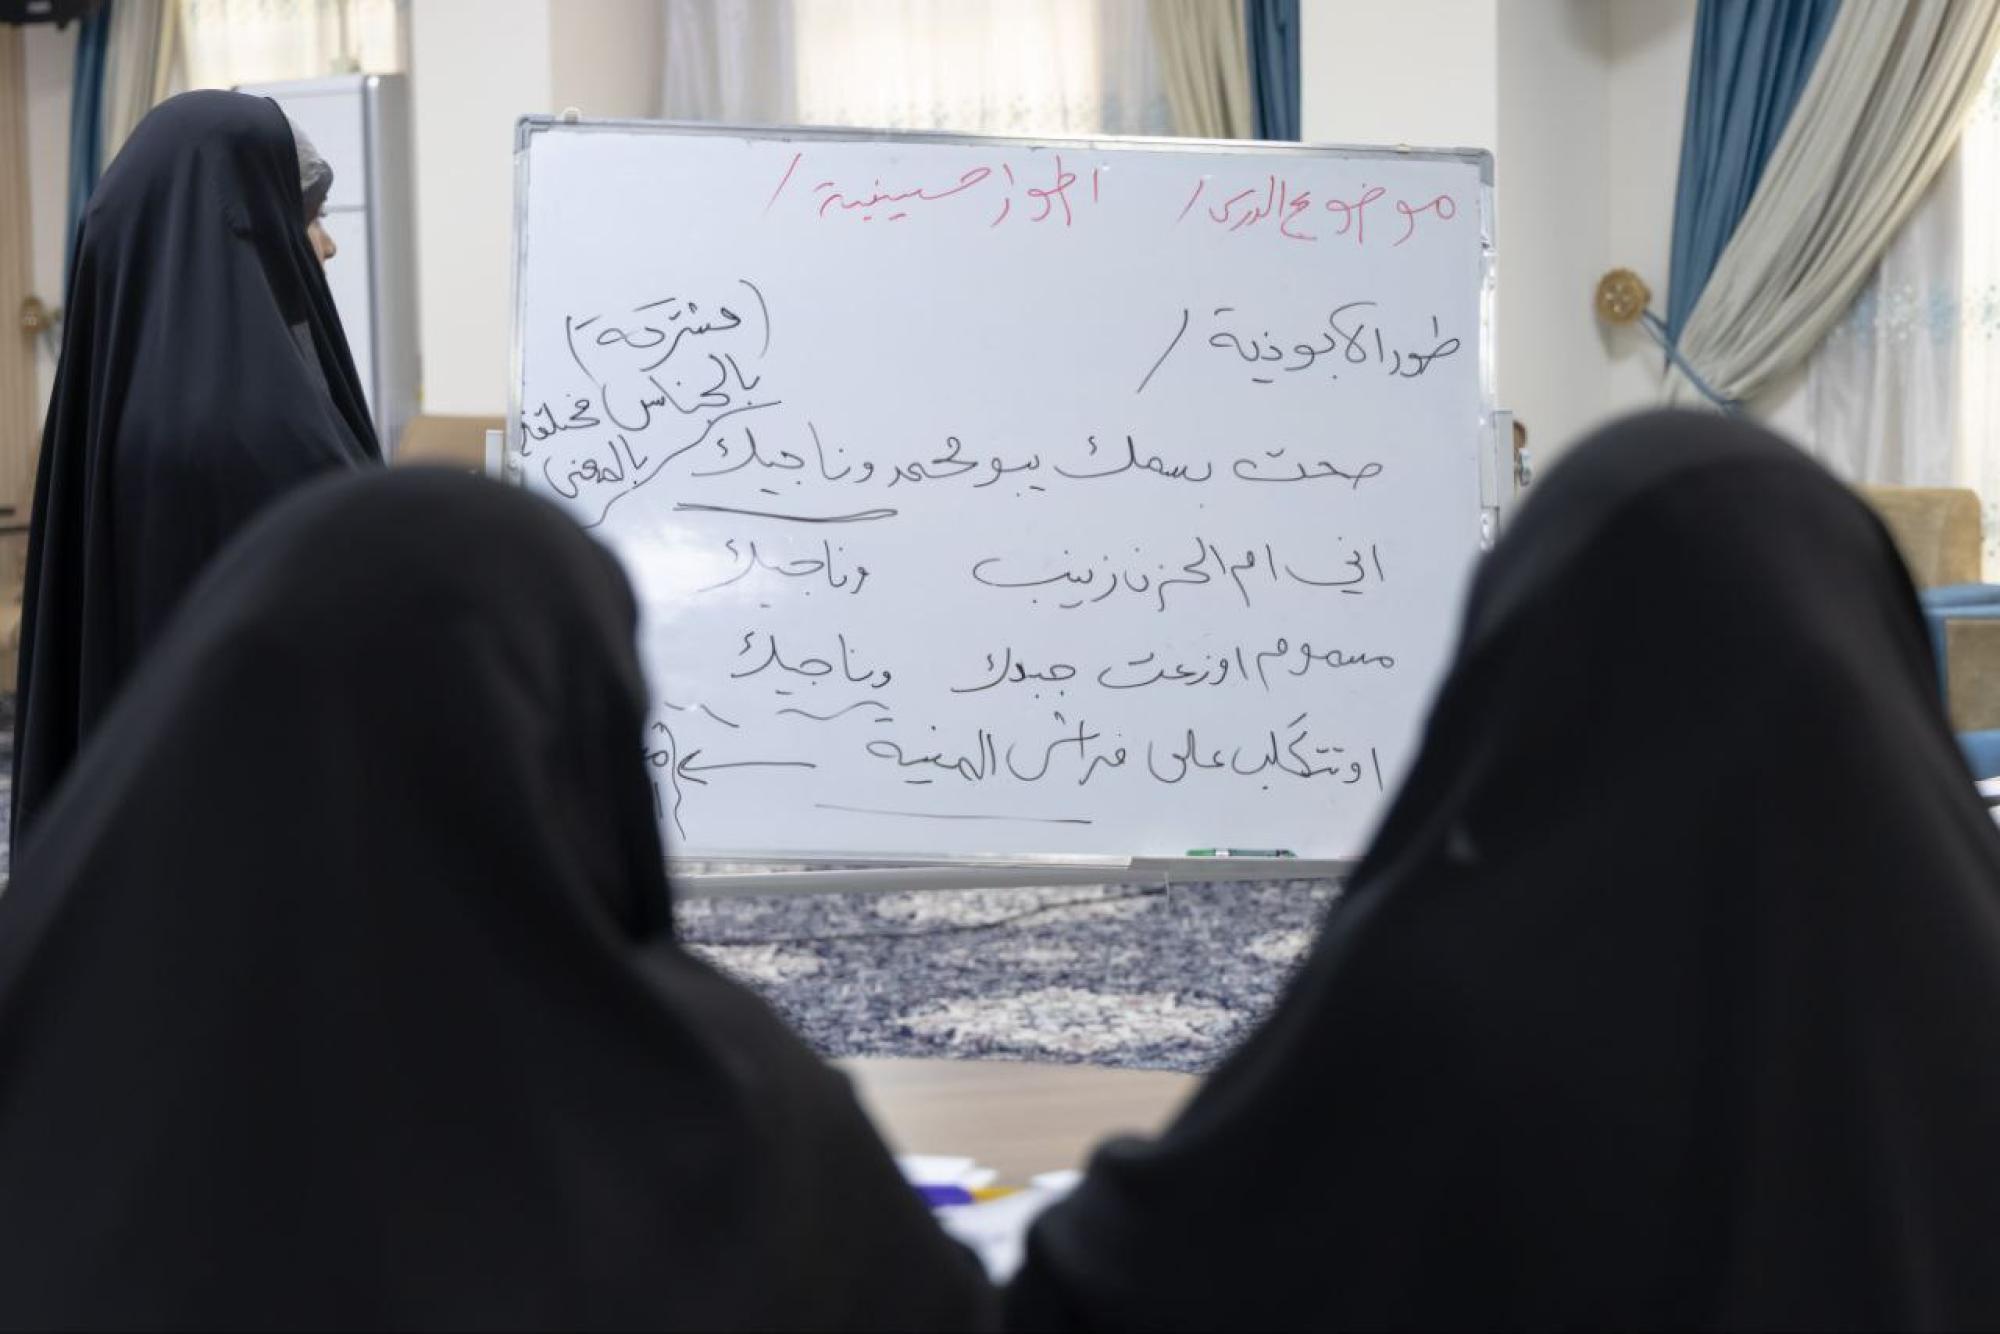 موضوع الدرس / اطوار حسينية /
طور الابوذية /
(مشتركة)
بالجناس مختلفة
بالمعنى
صحت بسمك يبو محمد وناجيك
اني ام الحزن زينب وناجيك
مسموم اوزعت جبدك وناجيك
اوتتكلب على فراش المنية